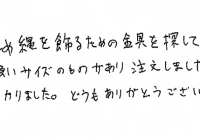 め縄を飾るための金具を探して
良いサイズのものがあり注文しました
カりました。どうもありがとうござい